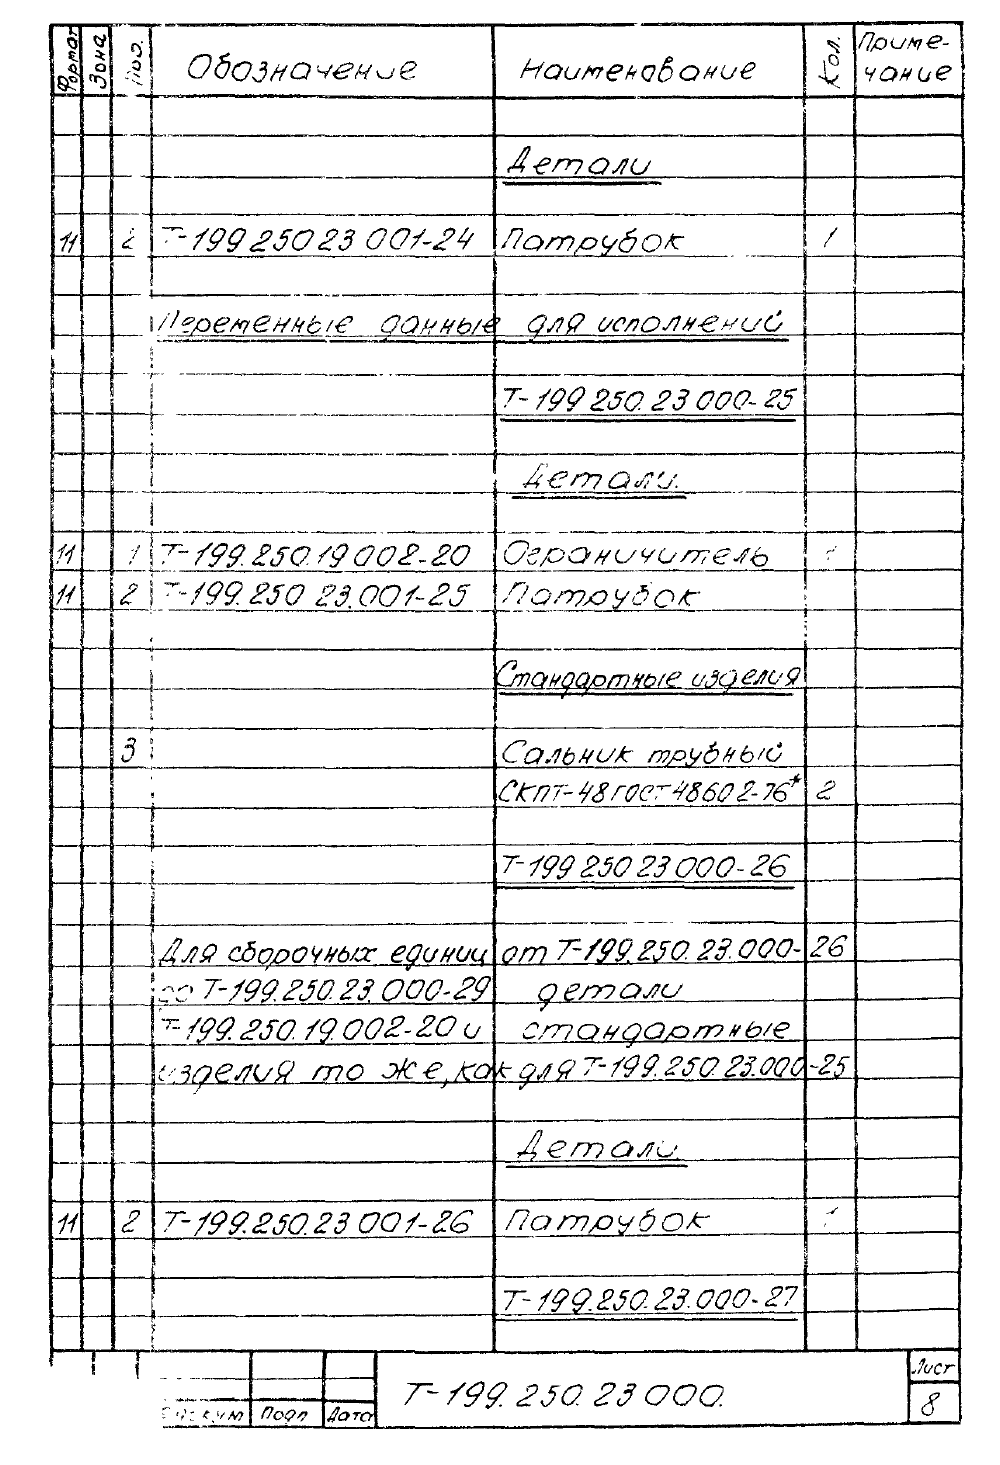 Формат Зона Поз. Обозначение Наименование Кол. Приме-
чание
Детали
11 2 Т-199 250 23 001-24 Патрубок 1
Переменные данные для исполнений
Т-199 250. 23 000-25
Детали.
11 1 Т-199. 250. 19 002-20 Ограничитель 1
11 2 Т-199. 250 23. 001-25 Патрубок
Стандартные изделия
3 Сальник трубный
СКПТ-48 ГОСТ 48602-76* 2
Т-199 250 23 000-26
Для сборочных единиц от Т-199. 250. 23. 000-26
до Т-199. 250. 23. 000-29 детали
Т-199. 250. 19. 002-20 и стандартные
изделия то же, как для Т-199. 250. 23. 000-25
Детали.
11 2 Т-199. 250. 23 001-26 Патрубок 1
Т-199. 250. 23. 000-27
Т-199. 250. 23 000.
Лист
8
Подп Дата